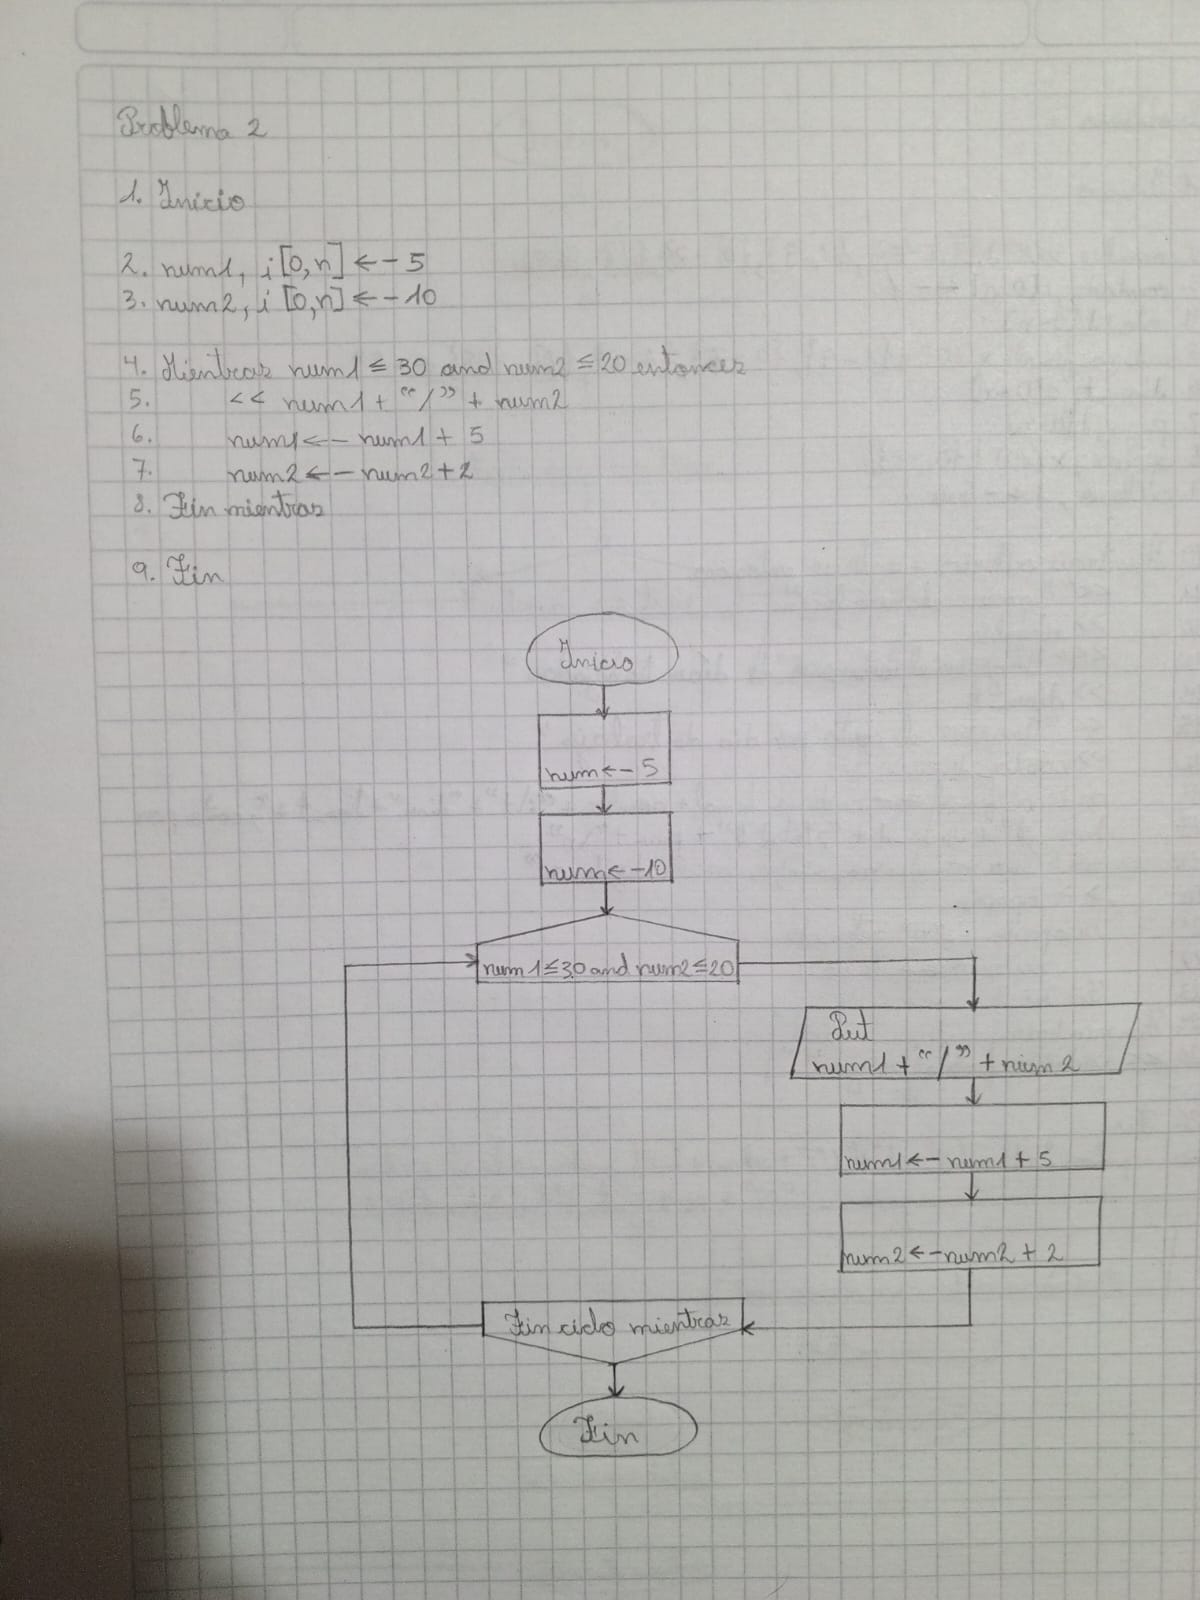 Problema 2
1. Inicio
2. num1, i [0,n] ← - 5
3. num2, i [0,n] ← - 10
4. Mientras num1 ≤ 30 and num2 ≤ 20 entonces
5. << num1 + “/” + num2
6. num1 ← - num1 + 5
7. num2 ← - num2 + 2
8. Fin mientras
9. Fin
Inicio
num ← - 5
num ← - 10
num1 ≤ 30 and num2 ≤ 20
Put
num1 + “/” + num2
num1 ← - num1 + 5
num2 ← - num2 + 2
Fin ciclo mientras
Fin